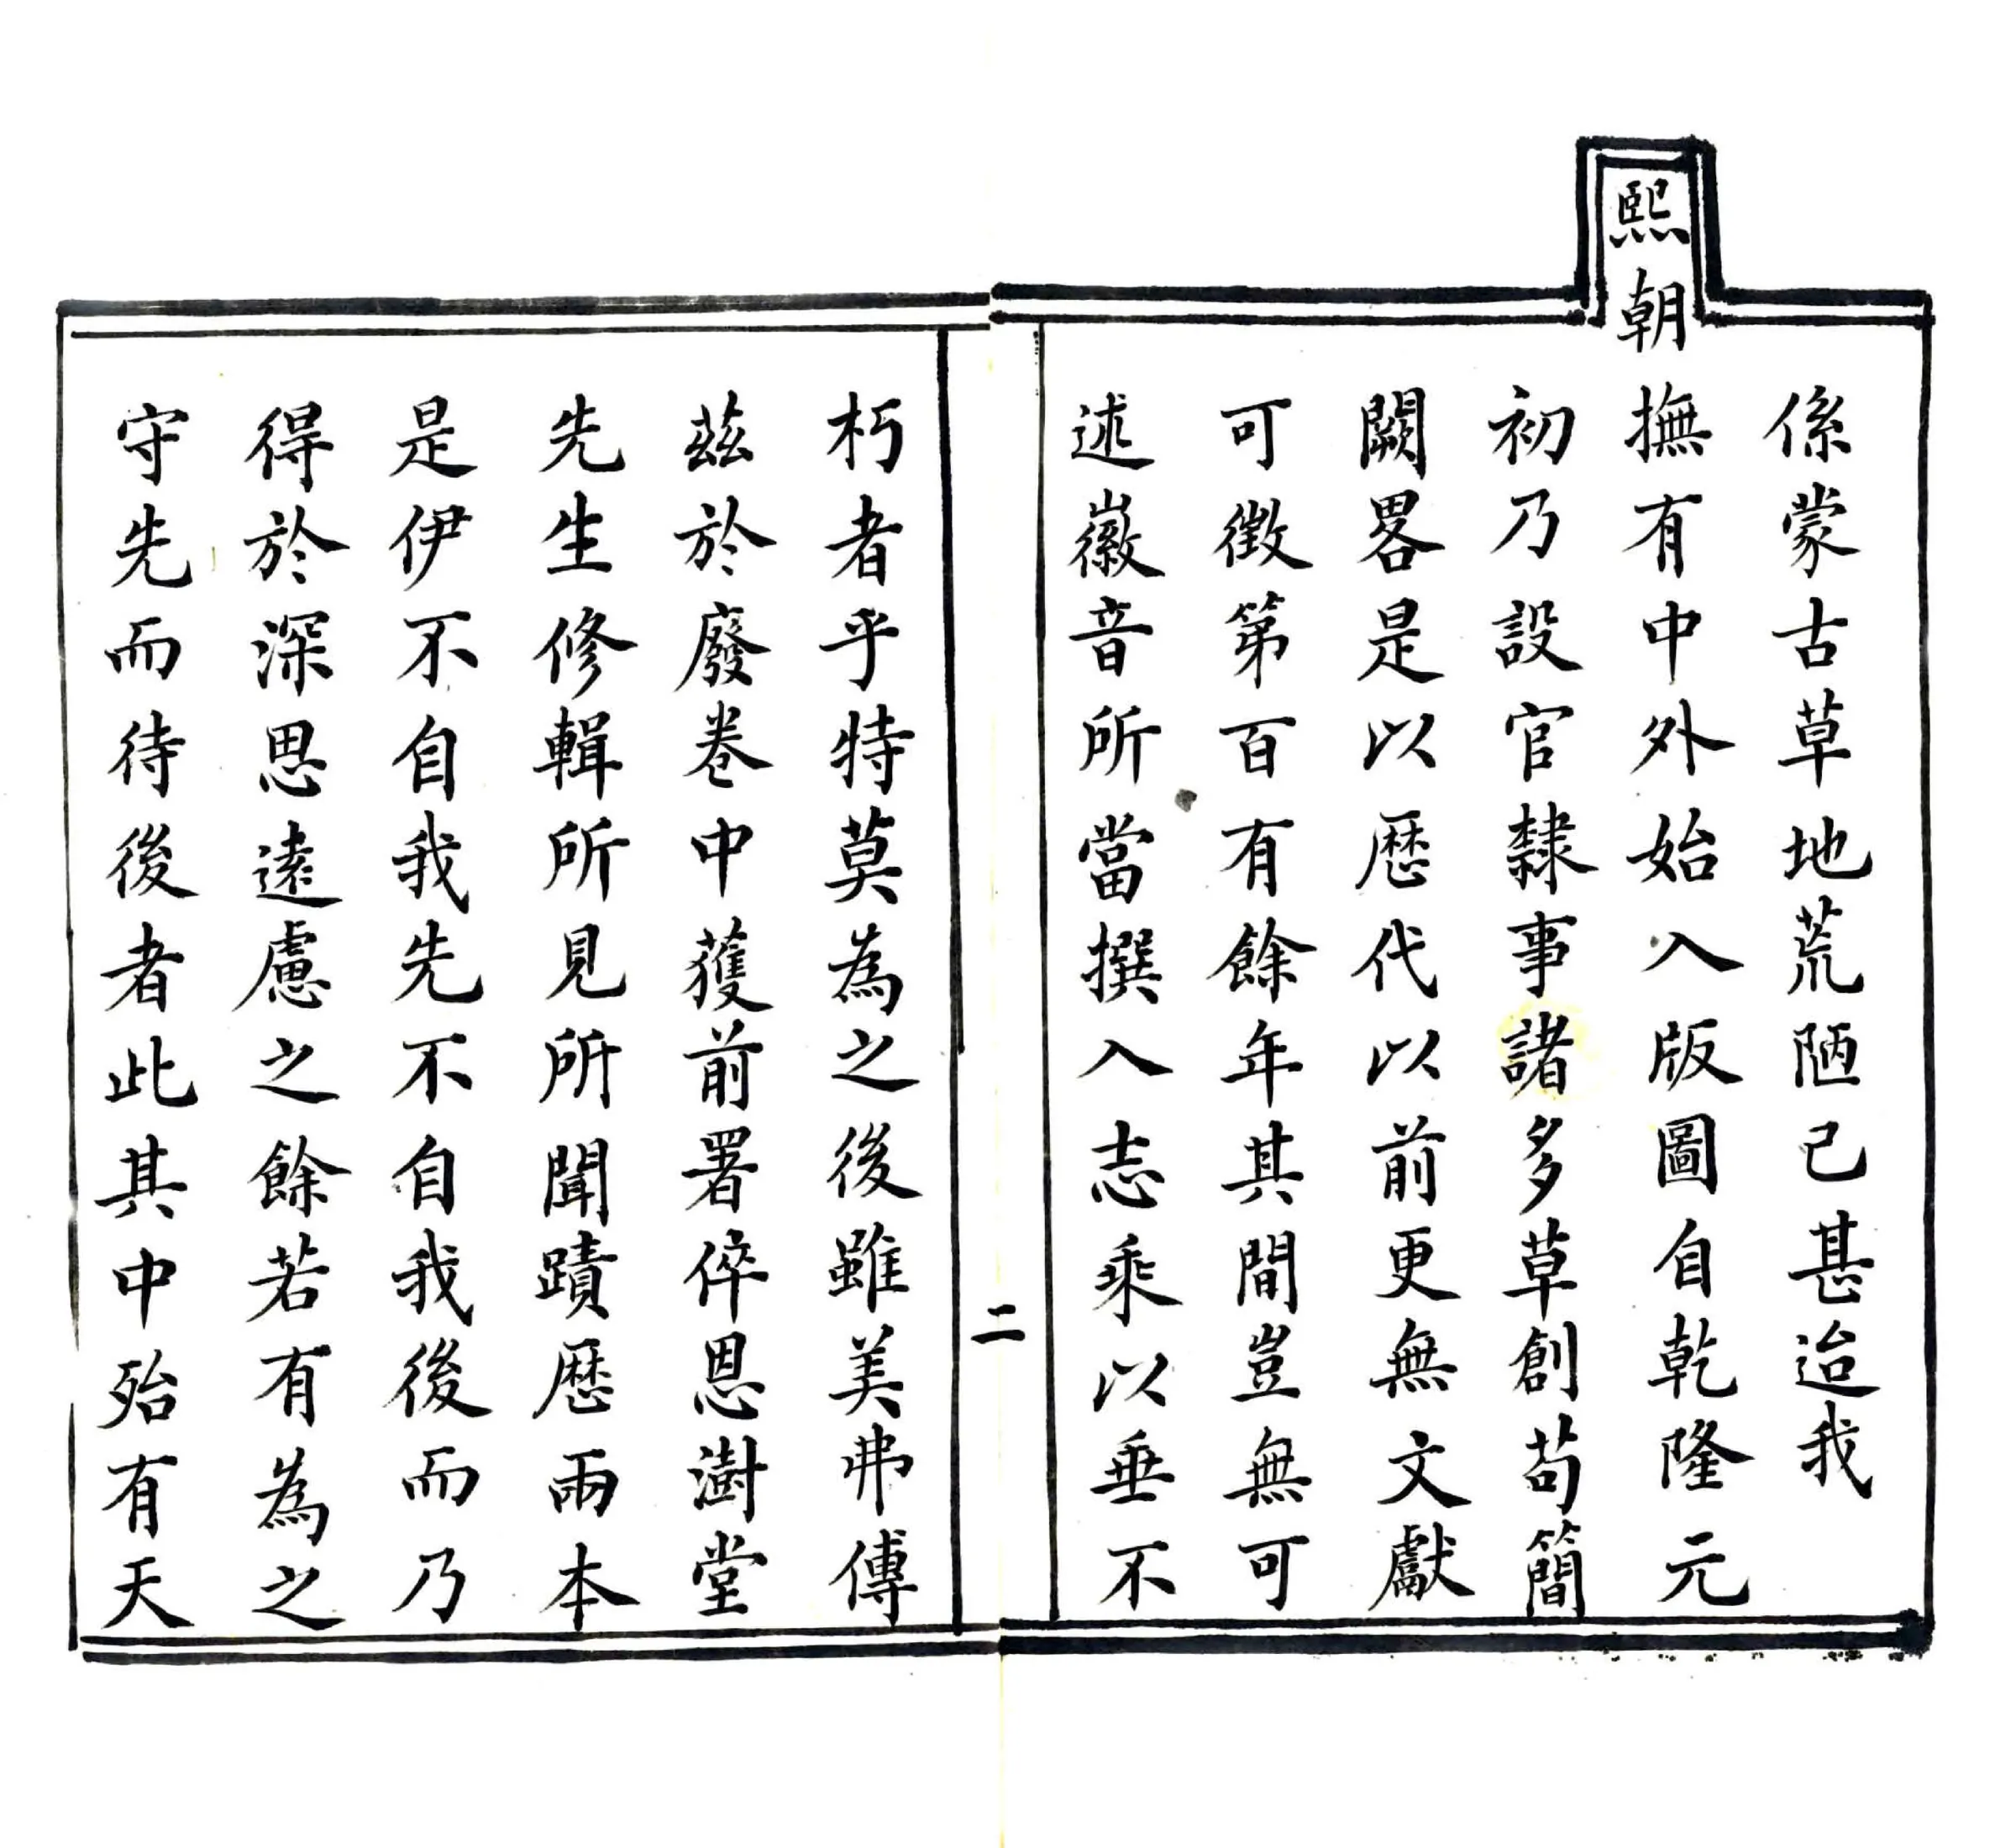 係蒙古草地荒陋已甚迨我
熙朝撫有中外始入版圖自乾隆元
初乃設官隸事諸多草創苟簡
闕畧是以歷代以前更無文獻
可徵第百有餘年其間豈無可
述徽音所當撰入志乘以垂不
二
朽者乎特莫為之後雖美弗傳
茲於廢卷中獲前署倅恩澍堂
先生修輯所見所聞蹟歷兩本
是伊不自我先不自我後而乃
得於深思遠慮之餘若有為之
守先而待後者此其中殆有天